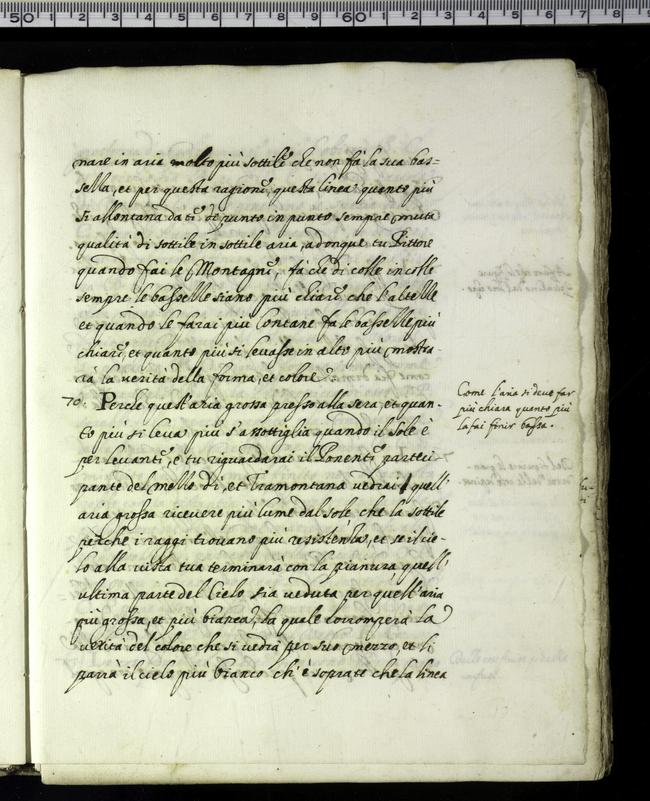 nare in aria molto più sottile che non fà la sua bas=
sella, et per questa ragione, questa linea quanto più
si allontana da te, de punto in punto sempre muta
qualità di sottile in sottile aria, adonque tu Pittore
quando fai le Montagne, fa che di colle in colle
sempre le bassesse siano più chiare che l'altesse
et quando le farai più lontane fa le bassesse più
chiare, et quanto più si levasse in alto più mostra-
rà la verità della forma, et colore.
70. Perche quest'aria grossa presso alla sera, et quan-
to più si leva più s'assottiglia quando il Sole è
per levante, e tu riguardarai il Ponente parteci
pante del mezzo dì, et Tramontana vedrai quell'
aria grossa ricevere più lume dal sole che la sottile
perche i raggi trovano più resistenza, et se il cie-
lo alla vista tua terminarà con la pianura quell'
ultima parte del Cielo sia veduta per quell'aria
più grossa, et più bianca, la quale corromperà la
verità del colore che si vedrà per suo mezzo, et ti
parrà il cielo più bianco ch'è sopra te che la linea
Come l'aria si deve far
più chiara quanto più
la fai finir bassa.